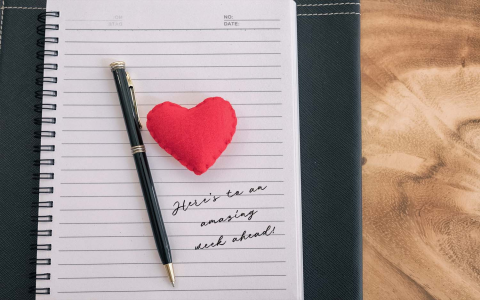 NO:
DATE:
Here's to an
amazing
week ahead!